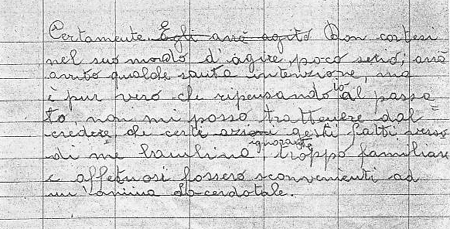 Certamente. Egli avrà agito Don Cortesi
nel suo modo d'agire poco serio, avrà
avuto qualche santa intenzione, ma
è pur vero che ripensando al passa=
to, non mi posso trattenere dal
credere che certe azioni gesti fatti verso
di me bambina ignorante troppo familiare
e affettuosi fossero sconvenienti ad
un'anima Sacerdotale.